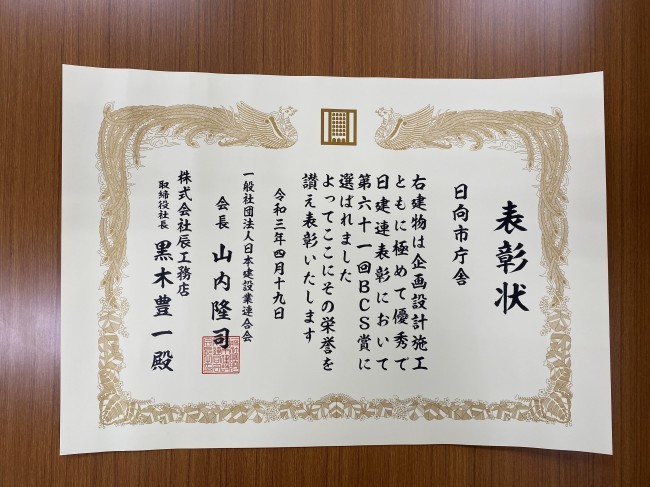 表彰状
日向市庁舎
右建物は企画設計施工
ともに極めて優秀で
日建連表彰において
第六十一回BCS賞に
選ばれました
よってここにその栄誉を
讃え表彰いたします
令和三年四月十九日
一般社団法人日本建設業連合会
会長 山内隆司
株式会社辰工務店
取締役社長 黒木豊一殿